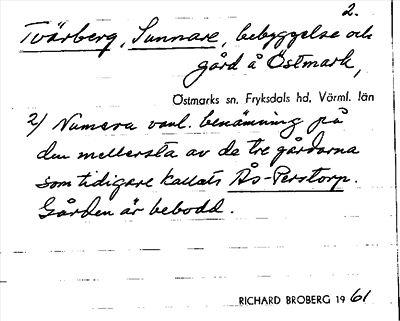 2.
Tvärberg, Sunnare, bebyggelse och
gård å Östmark,
Östmarks sn. Fryksdals hd, Värml. län
2) Numera vanl. benämning på
den mellersta av de tre gårdarna
som tidigare kallats Ås-Perstorp.
Gården är bebodd.
RICHARD BROBERG 1961